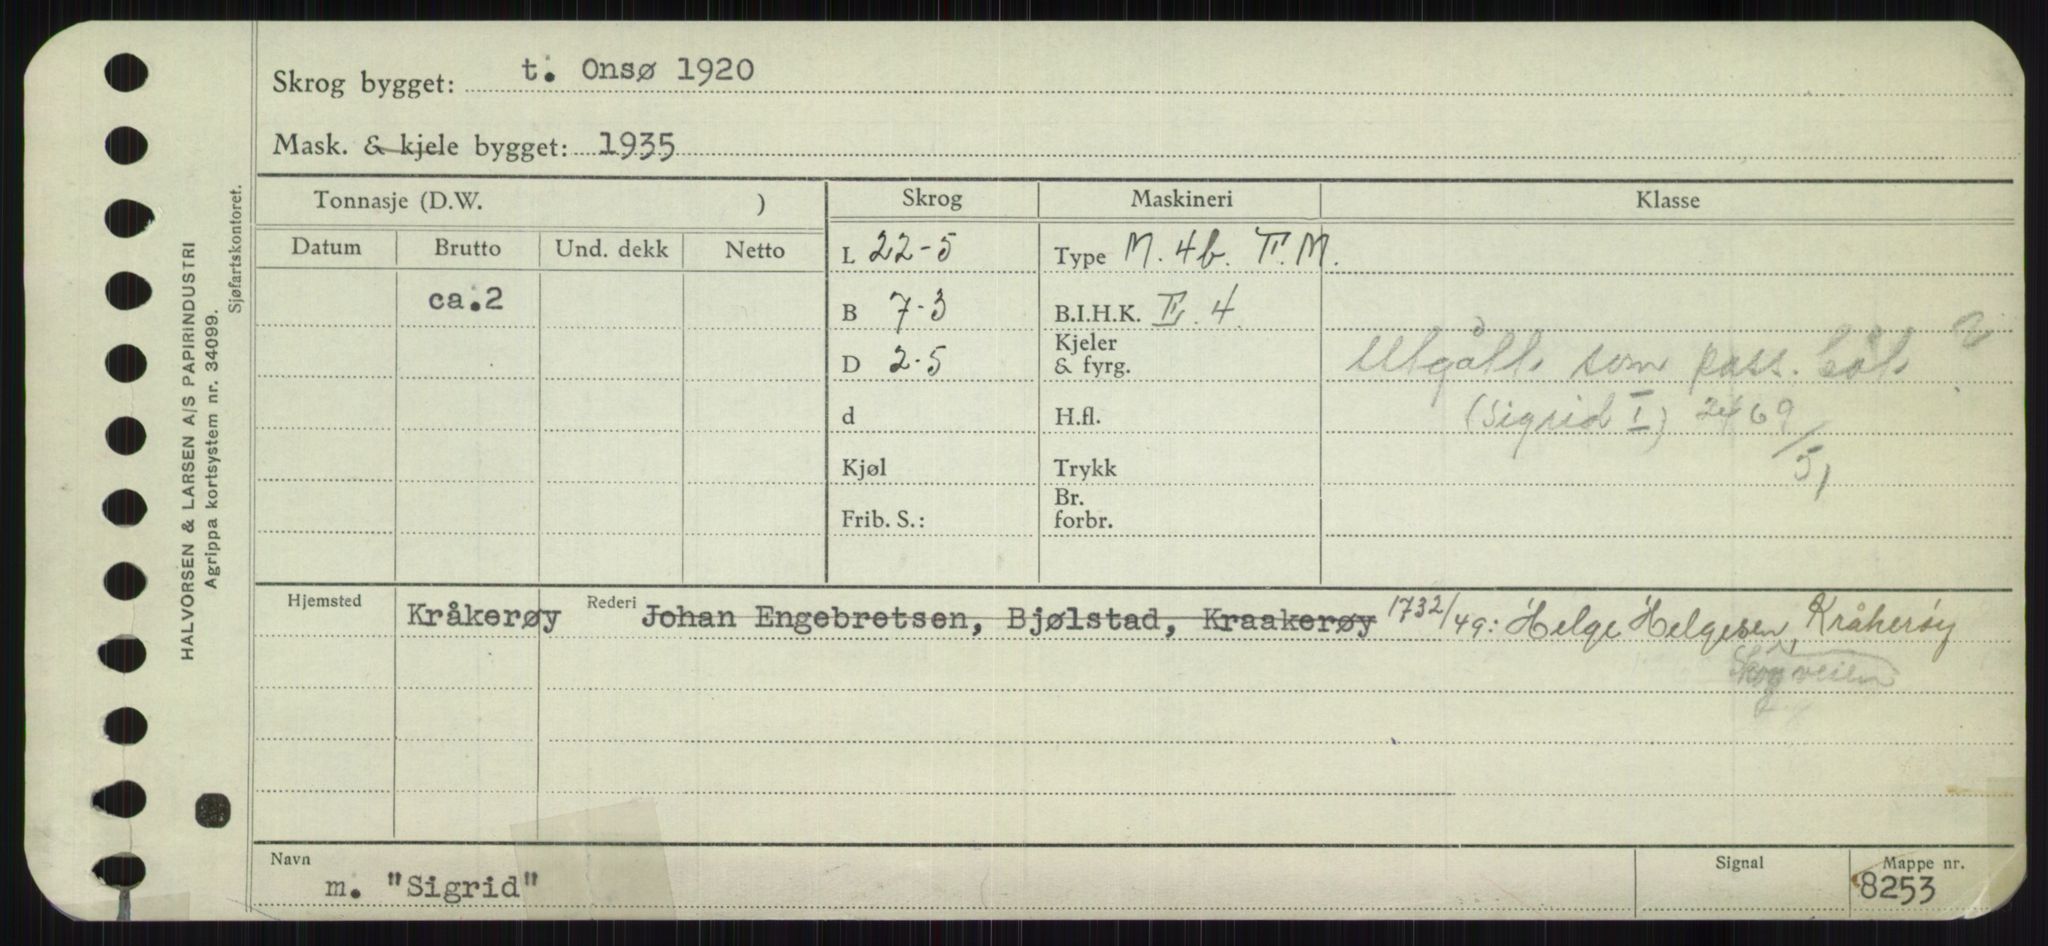 Skrog bygget: t. Onsø 1920
Mask. & kjele bygget: 1935
Tonnasje (D.W. ) Skrog Maskineri Klasse
Datum Brutto Und. dekk Netto L 22-5 Type M. 4b. T.M.
ca.2 B 7-3 B.I.H.K. II. 4
D 2-5 Kjeler & fyrg. Utgått som pass. båt ?
d H.fl. (Sigrid I) 2469/51
Kjøl Trykk
Frib. S.: Br. forbr.
Hjemsted Kråkerøy Rederi Johan Engebretsen, Bjølstad, Kraakerøy 1732/49: Helge Helgesen, Kråkerøy
Skogveien
Navn m. "Sigrid" Signal Mappe nr. 8253
HALVORSEN & LARSEN A/S PAPIRINDUSTRI
Agrippa kortsystem nr. 34099.
Sjøfartskontoret.